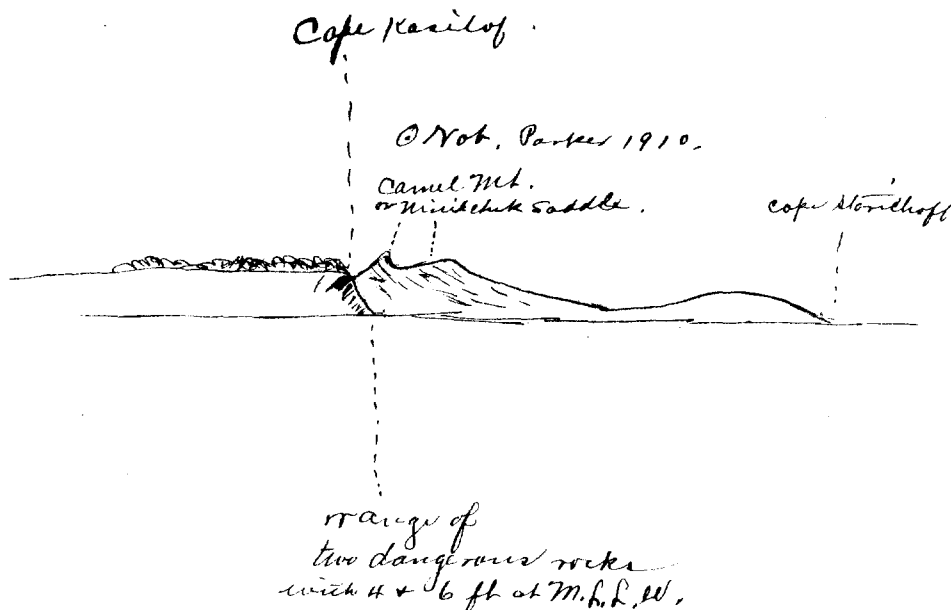 Cape Kasilof.
Not. Parker 1910.
Camel Mt.
or Ninilchik Saddle.
cape
range of
two dangerous rocks
with 4 & 6 ft at M.L.L.W.